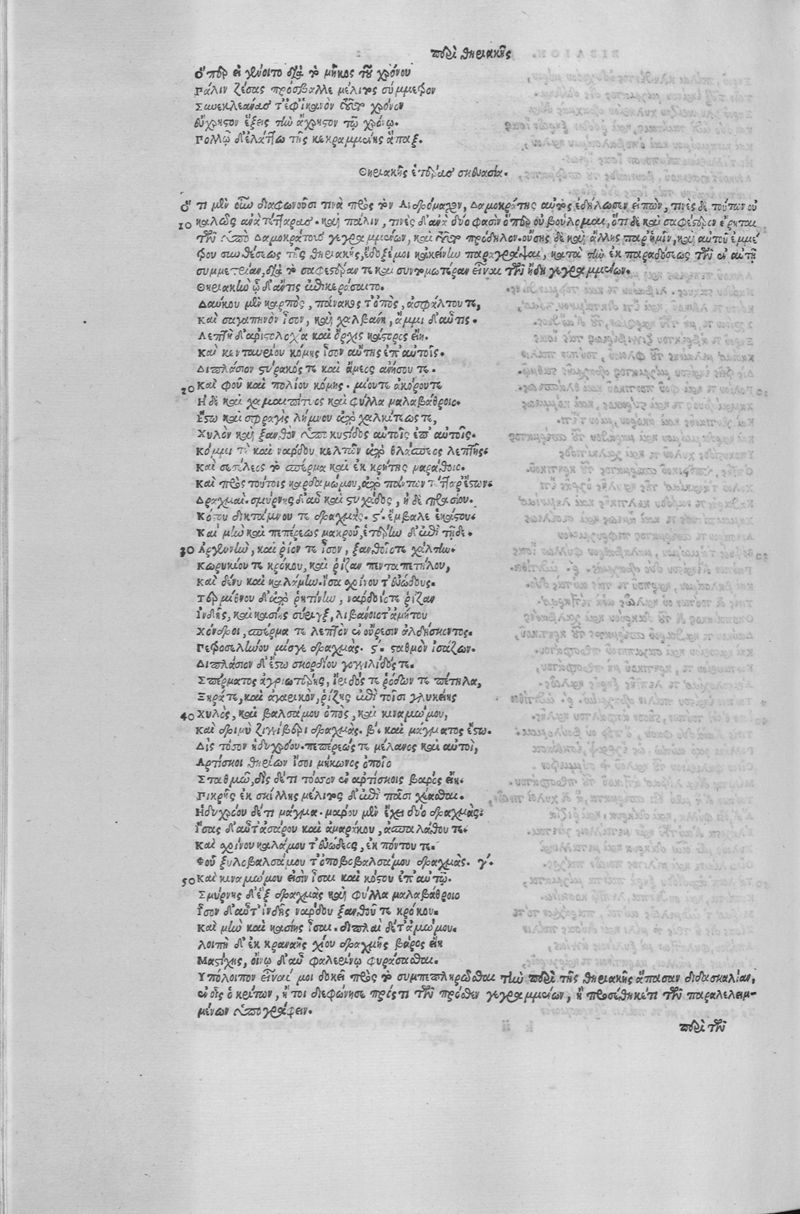 περὶ θηριακῆς
ὅπερ εἰ γένοιτο διὰ τὸ μῆκος τοῦ χρόνου
Πάλιν ζέσας πρόσβαλλε μέλιτος σύμμετρον
Συνεκλεάνας τ' ἐφ' ἱκανὸν χρόνον
εὔχρηστον ἕξεις τὴν ἄχρηστον τῷ χρόνῳ.
Πολλῷ δ' ἐλάττω τῆς κεκραμμένης ἅπαξ.
Θηριακῆς ἑτέρας σκευασία.
ὅ τι μὲν οὖν διαφωνοῦσί τινα πρὸς τὸν Ἀνδρόμαχον, Δαμοκράτης αὐτὸς ἐδήλωσεν εἰπών, τινὲς δὲ τούτων οὐ
10 καλῶς ἀνὰ τέτταρας. καὶ πάλιν, τινὲς δ' ἀνὰ δύο φασὶν ὅπερ οὐ βούλομαι, ὅτι δὲ καὶ σαφέστερον εἴρηται
τῶν ὑπὸ Δαμοκράτους γεγραμμένων, καὶ τοῦτο πρόδηλον. οὔσης δὲ καὶ ἄλλης παρ' ἡμῖν, καὶ αὐτοῦ ἐμμέ-
τρου συνθέσεως τῆς θηριακῆς, ἔδοξέ μοι κἀκείνην παραγράψαι, κατὰ τὴν ἐκ παραδόσεως τῶν ἐν αὐτῇ
συμμετρίαν, διὰ τὸ σαφεστέραν τε καὶ συντομωτέραν εἶναι τῶν ἤδη γεγραμμένων.
Θηριακὴν ὧδ' αὖτις ἐπικεράσαιτο.
Δαύκου μὲν καρπὸς, πάνακός τ' ὀπὸς, ἀσφάλτου τε,
Καὶ σαγαπηνὸν ἶσον, καὶ χαλβάνη, ἄμμι δ' αὖτις.
Λεπτὴ δ' ἀριστολοχία καὶ ὄρχις κάστορος εἴη.
Καὶ κενταυρίου κόμης ἶσον αὖτις ἐπ' αὐτοῖς.
Διπλάσιον στύρακός τε καὶ ἄμεος ἀνήσου τε.
20 Καὶ φοῦ καὶ πολίου κόμης. μίον τε ἀκόρου τε
Ἠδὲ καὶ χαμαιπίτυος καὶ φύλλα μαλαβάθροιο.
Ἔστω καὶ σφραγὶς λήμνου ἀπὸ χαλκίτεώς τε,
Χυλὸν καὶ ξανθὸν ὑποκυστίδος αὐτοῖς ἐπ' αὐτοῖς.
Κόμμι τε καὶ νάρδου κελτῶν ἀπὸ θλάσπεος λεπτῆς.
Καὶ σεσέλεος τὸ σπέρμα καὶ ἐκ κρήτης μαράθοιο.
Καὶ πρὸς τούτοις καρδαμώμου, ἀπὸ πάντων τέτταρες ἔστων.
Δραχμαὶ. σμύρνης δ' αὖ καὶ σχοίνοιο, ἠδὲ πρασίου.
Κόστου δικτάμνου τε δραχμὰς. ϛ'. ἔμβαλε ἑκάστου.
Καὶ μὴν καὶ πεπέρεως μακροῦ, ἑτέρην δ' ἐπὶ τῇδε.
30 Ἀργωνίην, καὶ ῥῖον τε ἶσον, ξανθοῖό τε χαίτην.
Κωρυκίου τε κρόκου, καὶ ῥίζαν πενταπετήλου,
Καὶ δόνυ καὶ καλαμίνθην. ἶσα σχοίνου τ' εὐώδους.
Τερμίνθου δ' ἀπὸ ῥητίνην, νάρδοιό τε ῥίζαν
Ἰνδῆς, καὶ κασίης σύριγξ, λιβάνοιό τ' ἀμήτου
Χόνδροι, σπέρμα τε λεπτὸν ἐν οὔρεσιν ἀλδήσκοντος.
Πετροσελίνου μίσγε δραχμὰς. ϛ'. σταθμὸν ἰσάζων.
Διπλάσιον δ' ἔστω σκορδίου γογγυλίδος τε.
Σπέρματος ἀγριωτέρης, ἴριδός τε ῥόδων τε πέτηλα,
Ξηρά τε, καὶ ἀγαρικὸν, ῥίζης ἐπὶ τοῖσι γλυκείης
40 Χυλὸς, καὶ βαλσάμου ὀπὸς, καὶ κιναμώμου,
Καὶ δριμὺ ζιγγίβερι δραχμὰς. β'. καὶ μάγματος ἔστω.
Δὶς τόσον ἡδυχρόου. πεπέρεώς τε μέλανος καὶ αὐτοῖ,
Ἀρτίσκοι θηρίων ἶσοι μήκωνος ὀποῖο
Σταθμῷ, δὶς δέ τι τόσσον ἐν ἀρτίσκοις βάρος εἴη.
Πικρῆς ἐκ σκίλλης μέλιτος δ' ἐπὶ πᾶσι χέασθαι.
Ἡδυχρόου δέ τι μάγμα. μάρου μὲν ἔχει δύο δραχμὰς.
Ἴσας δ' αὖτ' ἀσάρου καὶ ἀμαράκου, ἀσπαλάθου τε.
Καὶ σχοίνου καλάμου τ' εὐώδεος, ἐκ πόντου τε.
Φοῦ ξυλοβαλσάμου τ' ὀποβαλσάμου δραχμὰς. γ'.
50 Καὶ κιναμώμου εἰσὶν ἶσαι καὶ κόστου ἐπ' αὐτῷ.
Σμύρνης δ' ἓξ δραχμὰς καὶ φύλλα μαλαβάθροιο
Ἶσον δ' αὖτ' ἰνδῆς νάρδου ξανθοῦ τε κρόκου.
Καὶ μὴν καὶ κασίης ἶσαι. διπλαῖ δέ τ' ἀμώμου.
λοιπὴ δ' ἐκ κραναῆς χίου δραχμῆς βάρος εἴη
Μαστίχης, οἴνῳ δ' αὖ φαλερίνῳ φύρασθαι.
Ὑπόλοιπον εἶναί μοι δοκεῖ πρὸς τὸ συμπεπληρῶσθαι τὴν περὶ τῆς θηριακῆς ἅπασαν διδασκαλίαν,
ἐν οἷς ὁ κρίτων, ἤτοι διεφώνησε πρός τι τῶν πρόσθεν γεγραμμένων, ἢ προσέθηκέ τι τῶν παραλελειμ-
μένων ὑπογράφειν.
περὶ τῶν